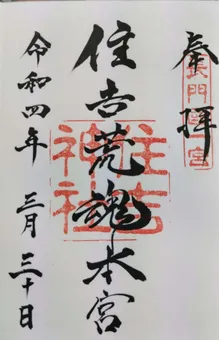 奉拝
長門國一宮
住吉荒魂本宮
住吉
神社
令和四年 三月三十日